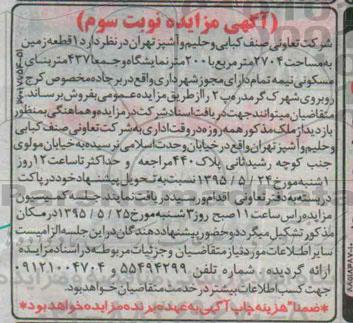 (آگهی مزایده نوبت سوم)
شرکت تعاونی صنف کبابی و حلیم و آشپز تهران در نظر دارد ۱ قطعه زمین
به مساحت ۲۷۰۴ مترمربع با ۲۰۰ متر نمایشگاه و جمعا ۴۳۷ متر بنای
مسکونی نیمه تمام دارای مجوز شهرداری واقع در برجاده مخصوص کرج
روبروی شهرک گرمدره پ ۲ را از طریق مزایده عمومی بفروش برساند.
متقاضیان میتوانند جهت دریافت اسناد شرکت در مزایده و هماهنگی بمنظور
بازدید از ملک مذکور همه روزه در وقت اداری به شرکت تعاونی صنف کبابی
و حلیم و آشپز تهران واقع در خیابان وحدت اسلامی نرسیده به خیابان مولوی
جنب کوچه رشیدثانی پلاک ۴۴۰ مراجعه و حداکثر تا ساعت ۱۲ روز
۱شنبه مورخ ۱۳۹۵/۵/۲۴ نسبت به تحویل پیشنهاد خود در پاکت
در بسته به دفتر تعاونی اقدام و رسید دریافت نمایند جلسه کمیسیون
مزایده راس ساعت ۱۱ صبح روز ۲شنبه مورخ ۱۳۹۵/۵/۲۵ در مکان
مذکور تشکیل میگردد و حضور پیشنهاد دهندگان در این جلسه الزامیست
سایر اطلاعات مورد نیاز متقاضیان و جزئیات مربوطه در اسناد مزایده
ارائه گردیده و شماره تلفن ۵۵۴۹۴۲۹۹ و ۰۹۱۲۱۰۰۴۷۰۴
جهت کسب اطلاعات بیشتر در خدمت متقاضیان خواهد بود.
*ضمنا" هزینه چاپ آگهی به عهده برنده مزایده خواهد بود*